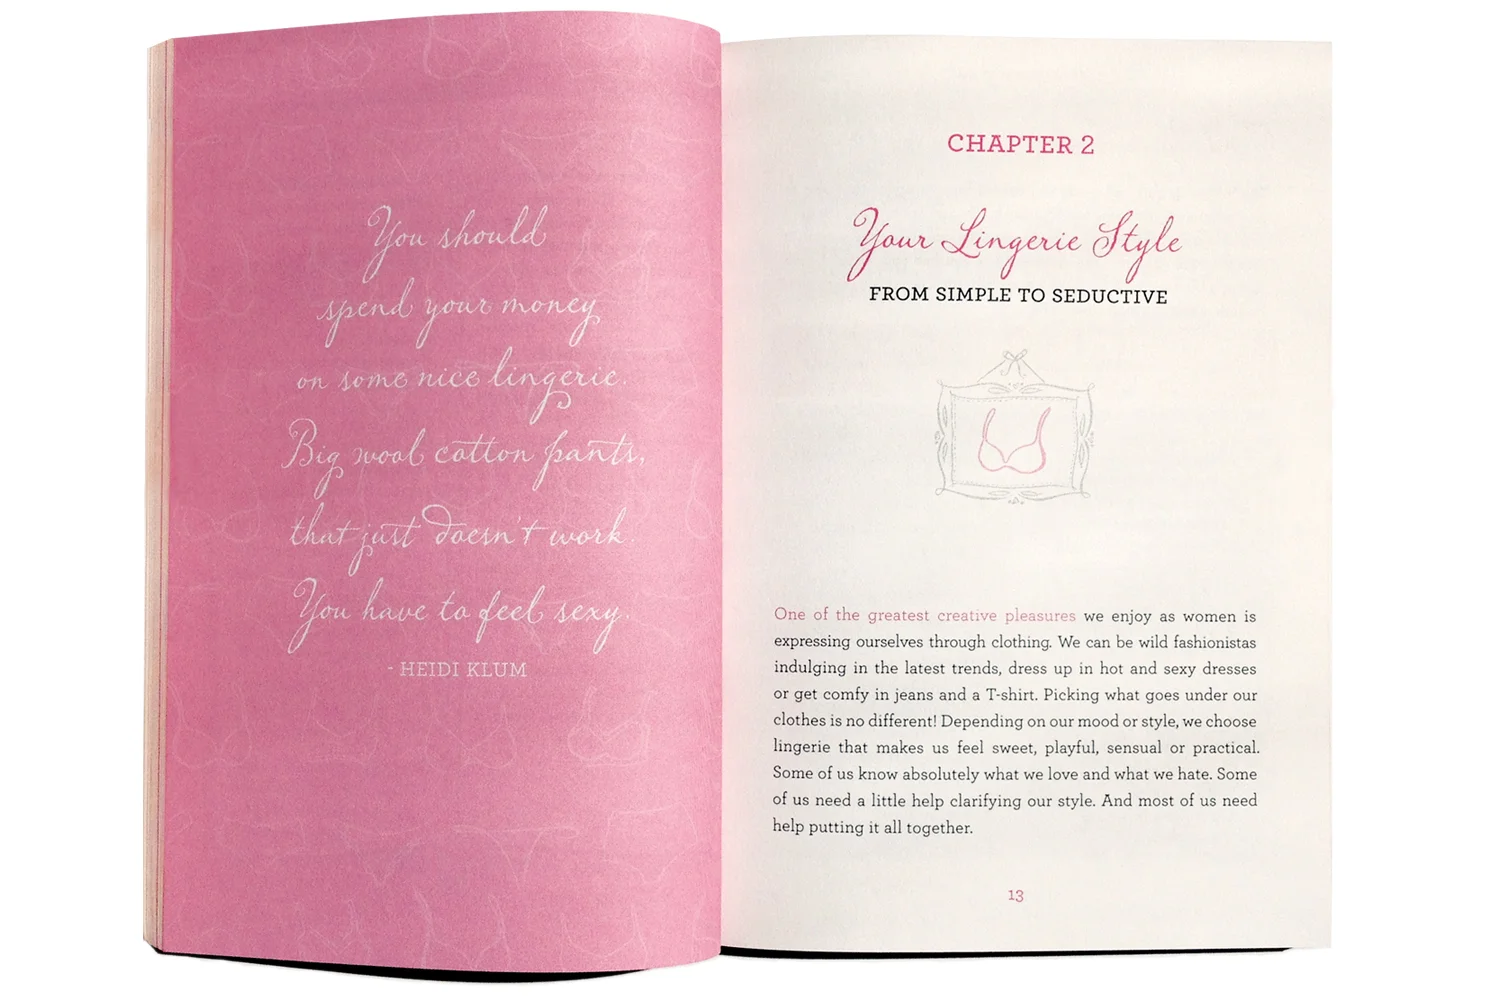 You should
spend your money
on some nice lingerie.
Big wool cotton pants,
that just doesn't work.
You have to feel sexy.
- HEIDI KLUM
CHAPTER 2
Your Lingerie Style
FROM SIMPLE TO SEDUCTIVE
One of the greatest creative pleasures we enjoy as women is
expressing ourselves through clothing. We can be wild fashionistas
indulging in the latest trends, dress up in hot and sexy dresses
or get comfy in jeans and a T-shirt. Picking what goes under our
clothes is no different! Depending on our mood or style, we choose
lingerie that makes us feel sweet, playful, sensual or practical.
Some of us know absolutely what we love and what we hate. Some
of us need a little help clarifying our style. And most of us need
help putting it all together.
13